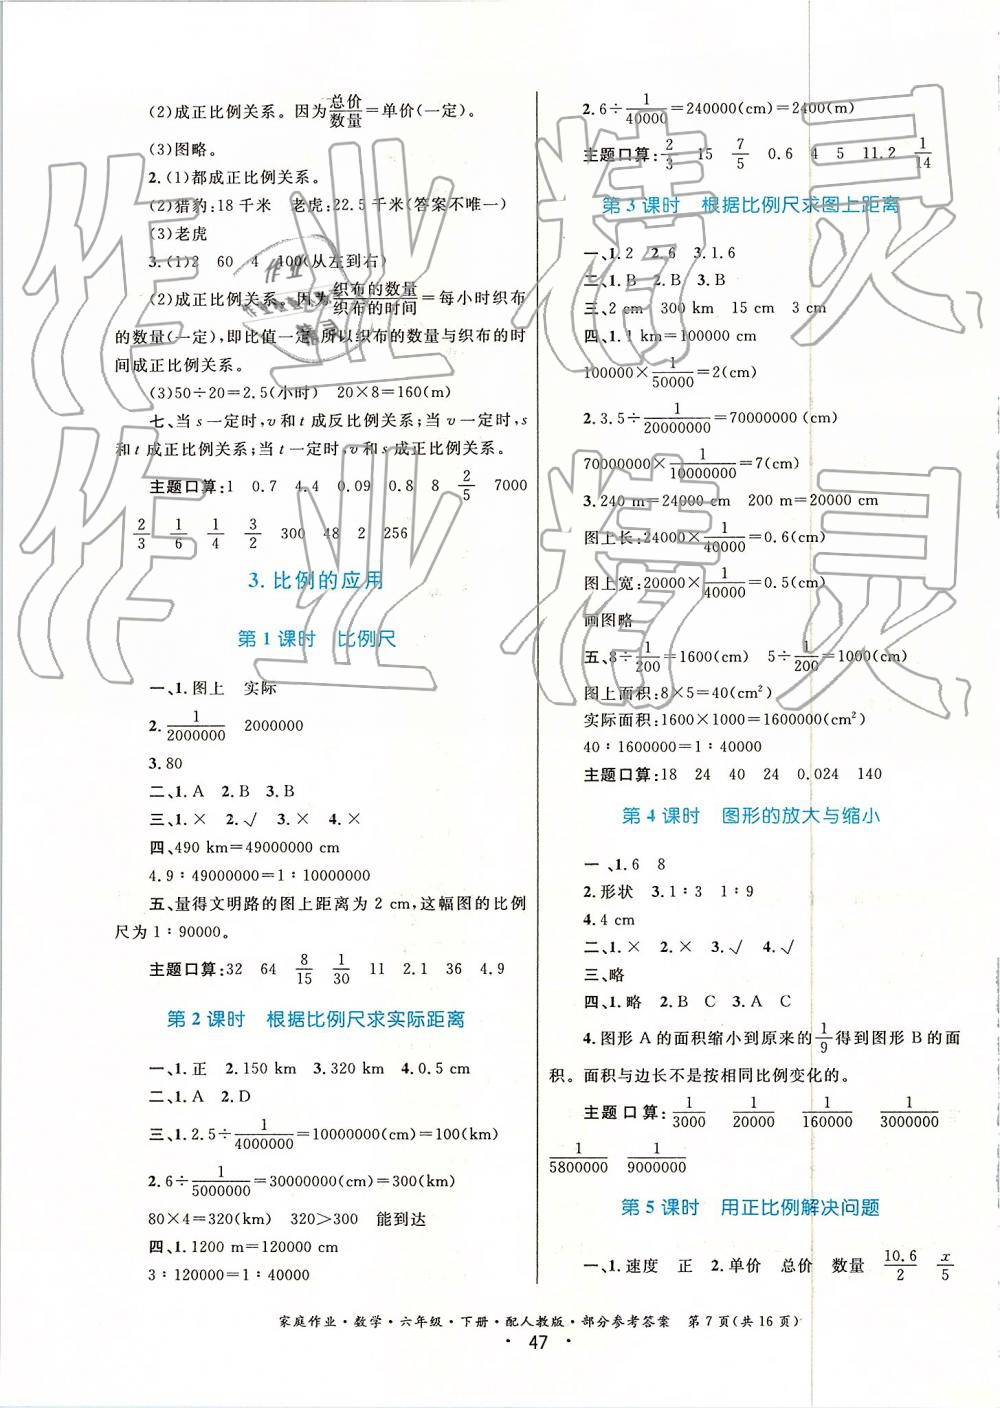 (2)成正比例关系。因为总价/数量=单价(一定)。
(3)图略。
2.(1)都成正比例关系。
(2)猎豹:18千米 老虎:22.5千米(答案不唯一)
(3)老虎
3.(1)2 60 4 100(从左到右)
(2)成正比例关系。因为织布的数量/织布的时间=每小时织布
的数量(一定),即比值一定,所以织布的数量与织布的时
间成正比例关系。
(3)50÷20=2.5(小时) 20×8=160(m)
七、当s一定时,v和t成反比例关系;当v一定时,s
和t成正比例关系;当t一定时,v和s成正比例关系。
主题口算:1 0.7 4.4 0.09 0.8 8 2/5 7000
2/3 1/6 1/4 3/2 300 48 2 256
3.比例的应用
第1课时 比例尺
一、1.图上 实际
2.1/2000000 2000000
3.80
二、1.A 2.B 3.B
三、1.× 2.√ 3.× 4.×
四、490 km=49000000 cm
4.9∶49000000=1∶10000000
五、量得文明路的图上距离为2 cm,这幅图的比例
尺为1∶90000。
主题口算:32 64 8/15 1/30 11 2.1 36 4.9
第2课时 根据比例尺求实际距离
一、1.正 2.150 km 3.320 km 4.0.5 cm
二、1.A 2.D
三、1.2.5÷1/4000000=10000000(cm)=100(km)
2.6÷1/5000000=30000000(cm)=300(km)
80×4=320(km) 320>300 能到达
四、1.1200 m=120000 cm
3∶120000=1∶40000
2.6÷1/40000=240000(cm)=2400(m)
主题口算:2/3 15 7/5 0.6 4 5 11.2 1/14
第3课时 根据比例尺求图上距离
一、1.2 2.6 3.1.6
二、1.B 2.B 3.B
三、2 cm 300 km 15 cm 3 cm
四、1.1 km=100000 cm
100000×1/50000=2(cm)
2.3.5÷1/20000000=70000000(cm)
70000000×1/10000000=7(cm)
3.240 m=24000 cm 200 m=20000 cm
图上长:24000×1/40000=0.6(cm)
图上宽:20000×1/40000=0.5(cm)
画图略
五、8÷1/200=1600(cm) 5÷1/200=1000(cm)
图上面积:8×5=40(cm²)
实际面积:1600×1000=1600000(cm²)
40∶1600000=1∶40000
主题口算:18 24 40 24 0.024 140
第4课时 图形的放大与缩小
一、1.6 8
2.形状 3.1∶3 1∶9
4.4 cm
二、1.× 2.× 3.√ 4.√
三、略
四、1.略 2.B C 3.A C
4.图形A的面积缩小到原来的1/9得到图形B的面
积。面积与边长不是按相同比例变化的。
主题口算:1/3000 1/20000 1/160000 1/3000000
1/5800000 1/9000000
第5课时 用正比例解决问题
一、1.速度 正 2.单价 总价 数量 10.6/2 x/5
家庭作业·数学·六年级·下册·配人教版·部分参考答案 第7页(共16页)
·47·
作业精灵
作业精灵